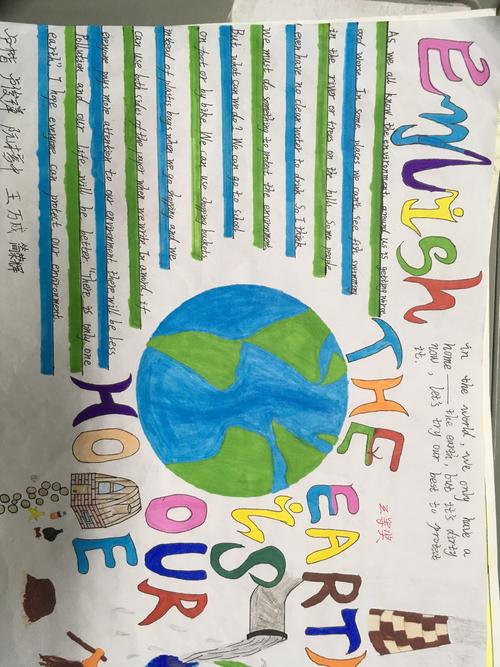 English
As we all know, the environment around us is getting worse
and worse. In some places we can't see fish swimming
in the river or trees on the hills. Some people
even have no clean water to drink. So I think
We must do something to protect the environment.
But what can we do? We can go to school
on foot or by bike. We can use shopping baskets
instead of plastic bags when we go shopping and we
can use both sides of the paper when we write. In a word, if
everyone pays more attention to our environment there will be less
Pollution and our life will be better. "There is only one
earth". I hope everyone can protect our environment.
in the world, we only have a
home —— the earth, but it's dirty
now, let's try our best to protect
it.
THE EARTH
iS
OUR
HOME
王
王万成